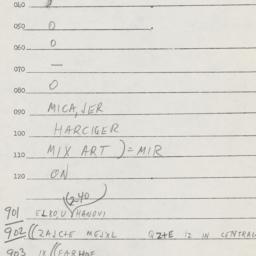 040 0
050 0
060 0
070 —
080 0
090 MICA, JER
100 HARCIGER
110 MIX ART ) = MIR
120 ON
(240
901 ELXO, U HANOVI
902 ((ZAJCHE MEJXL QZ+E IZ IN CENTRAL
903 IX ((FARHOE